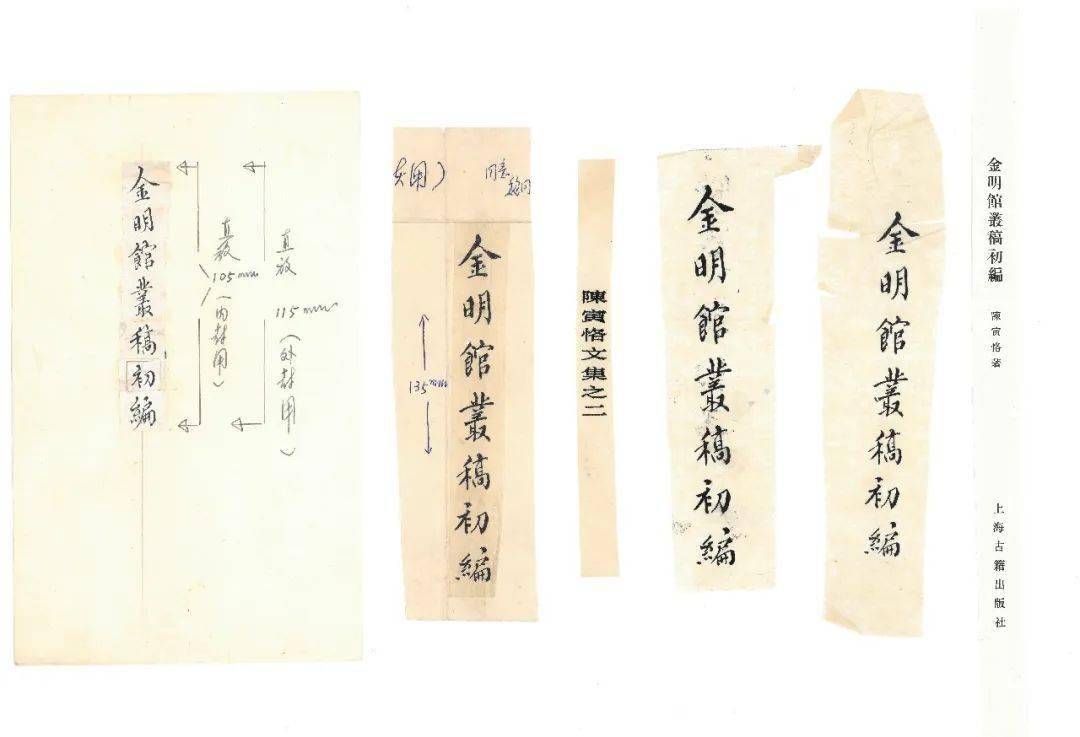 金明館叢稿初編
直放
105mm
(内封用)
直放
115mm
(外封用)
用)
同意
135mm
金明館叢稿初編
陳寅恪文集之二
金明館叢稿初編
金明館叢稿初編
金明館叢稿初編
陳寅恪著
上海古籍出版社